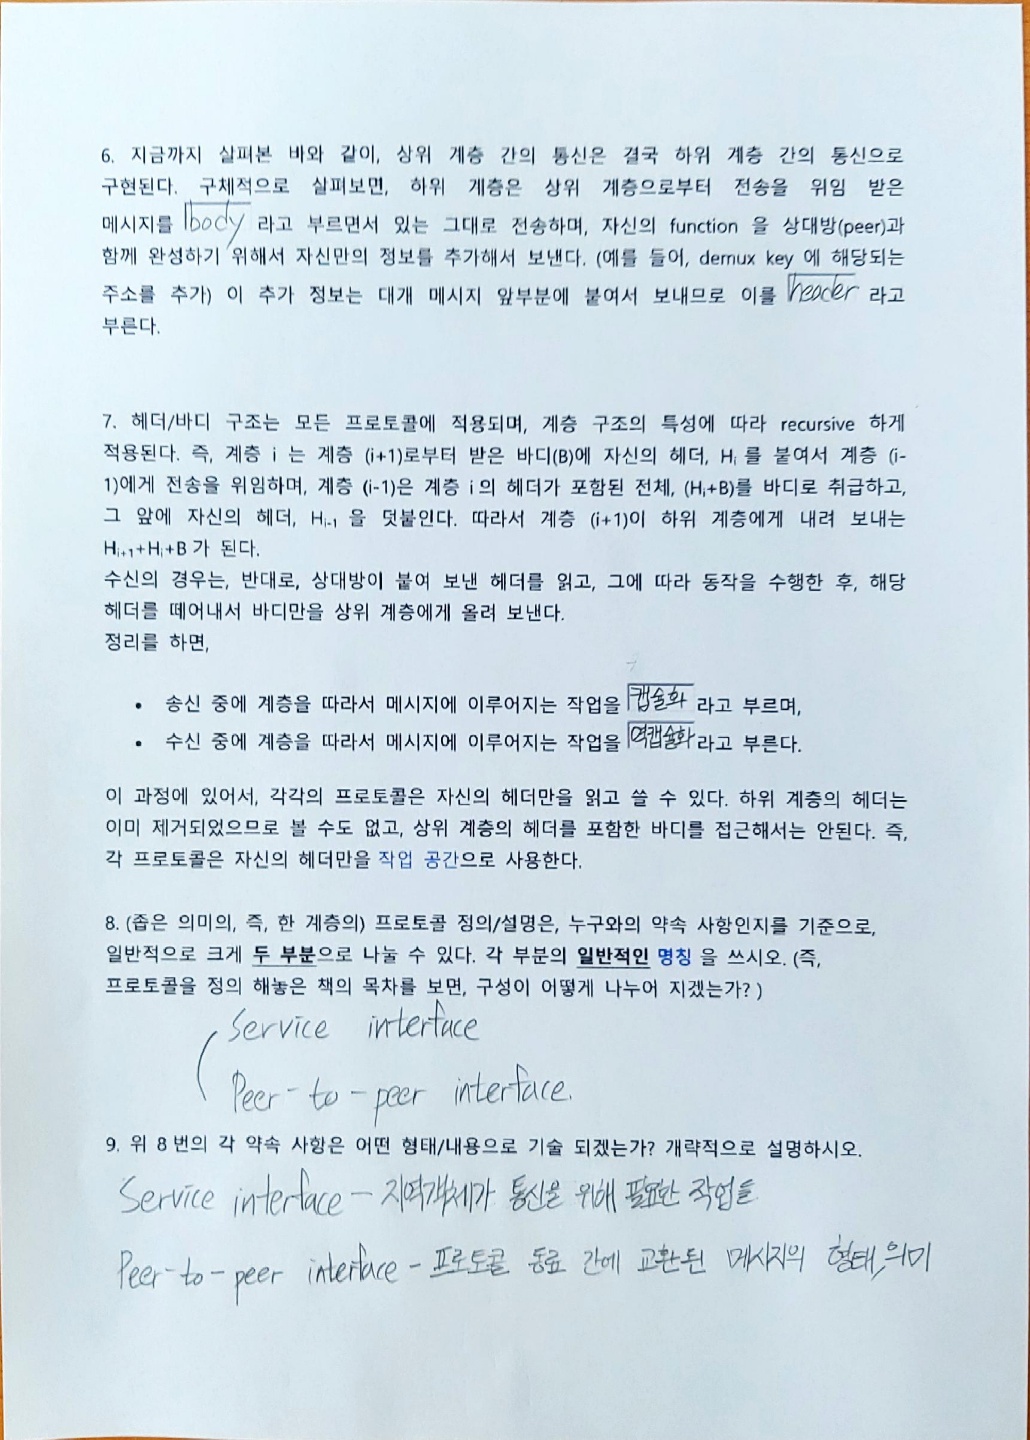 6. 지금까지 살펴본 바와 같이, 상위 계층 간의 통신은 결국 하위 계층 간의 통신으로
구현된다. 구체적으로 살펴보면, 하위 계층은 상위 계층으로부터 전송을 위임 받은
메시지를 body 라고 부르면서 있는 그대로 전송하며, 자신의 function 을 상대방(peer)과
함께 완성하기 위해서 자신만의 정보를 추가해서 보낸다. (예를 들어, demux key 에 해당되는
주소를 추가) 이 추가 정보는 대개 메시지 앞부분에 붙여서 보내므로 이를 header 라고
부른다.
7. 헤더/바디 구조는 모든 프로토콜에 적용되며, 계층 구조의 특성에 따라 recursive 하게
적용된다. 즉, 계층 i 는 계층 (i+1)로부터 받은 바디(B)에 자신의 헤더, Hᵢ 를 붙여서 계층 (i-
1)에게 전송을 위임하며, 계층 (i-1)은 계층 i 의 헤더가 포함된 전체, (Hᵢ+B)를 바디로 취급하고,
그 앞에 자신의 헤더, Hᵢ₋₁ 을 덧붙인다. 따라서 계층 (i+1)이 하위 계층에게 내려 보내는
Hᵢ₊₁+Hᵢ+B 가 된다.
수신의 경우는, 반대로, 상대방이 붙여 보낸 헤더를 읽고, 그에 따라 동작을 수행한 후, 해당
헤더를 떼어내서 바디만을 상위 계층에게 올려 보낸다.
정리를 하면,
• 송신 중에 계층을 따라서 메시지에 이루어지는 작업을 캡슐화 라고 부르며,
• 수신 중에 계층을 따라서 메시지에 이루어지는 작업을 역캡슐화 라고 부른다.
이 과정에 있어서, 각각의 프로토콜은 자신의 헤더만을 읽고 쓸 수 있다. 하위 계층의 헤더는
이미 제거되었으므로 볼 수도 없고, 상위 계층의 헤더를 포함한 바디를 접근해서는 안된다. 즉,
각 프로토콜은 자신의 헤더만을 작업 공간으로 사용한다.
8. (좁은 의미의, 즉, 한 계층의) 프로토콜 정의/설명은, 누구와의 약속 사항인지를 기준으로,
일반적으로 크게 두 부분으로 나눌 수 있다. 각 부분의 일반적인 명칭 을 쓰시오. (즉,
프로토콜을 정의 해놓은 책의 목차를 보면, 구성이 어떻게 나누어 지겠는가? )
Service interface
Peer-to-peer interface.
9. 위 8 번의 각 약속 사항은 어떤 형태/내용으로 기술 되겠는가? 개략적으로 설명하시오.
Service interface - 지역객체가 통신을 위해 필요한 작업들
Peer-to-peer interface - 프로토콜 동료 간에 교환된 메시지의 형태, 의미